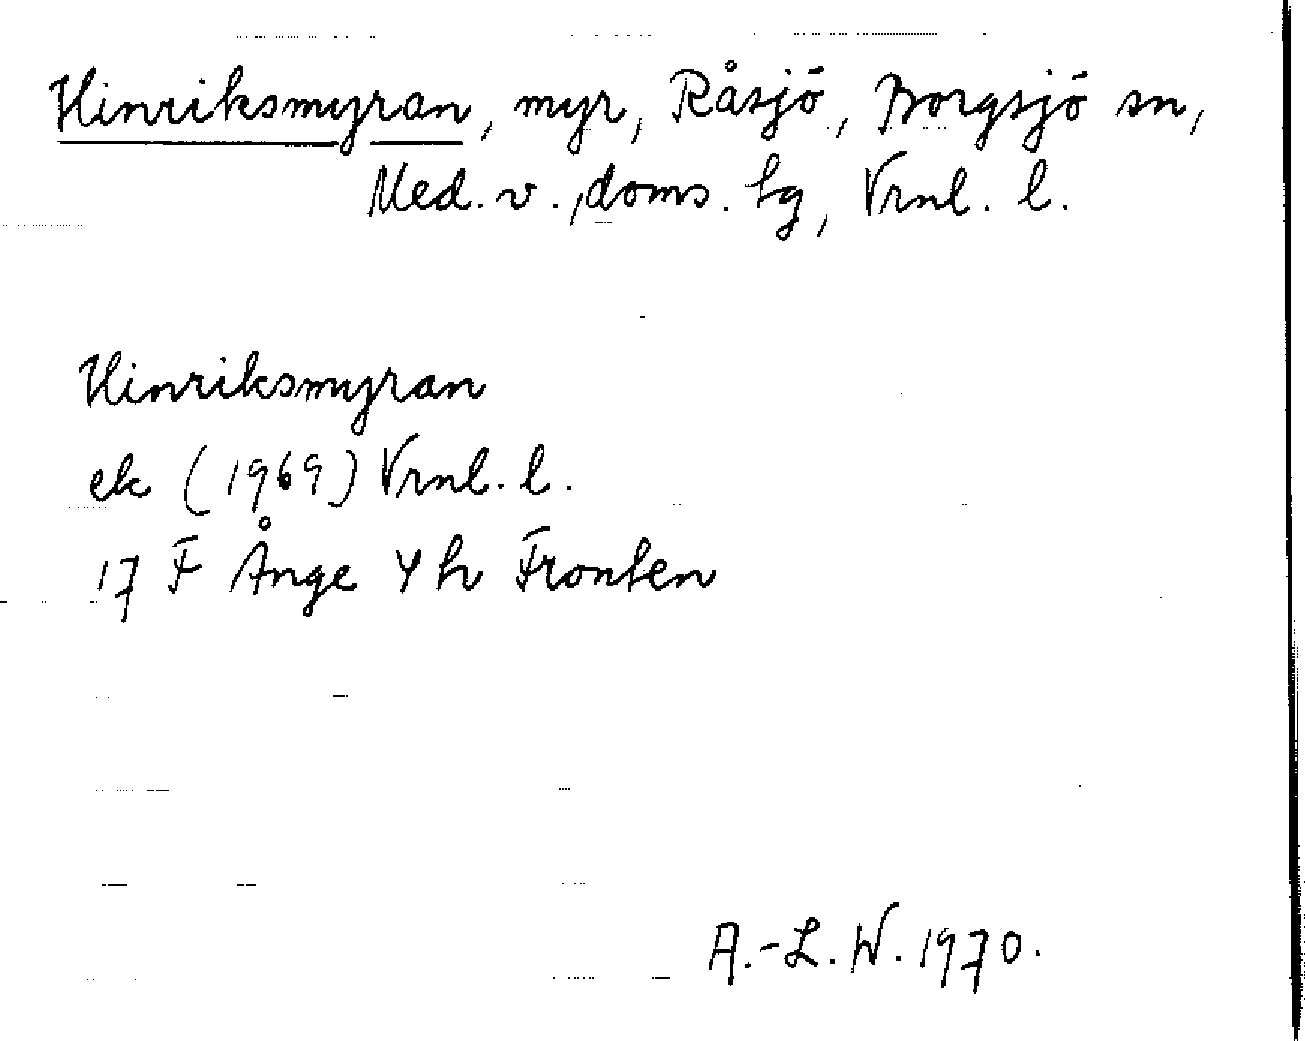 Hinriksmyran, myr, Råsjö, Borgsjö sn,
Med. v., doms. hg, Vrnl. l.
Hinriksmyran
ek (1969) Vrnl. l.
17 F Ånge Y h Fronten
A.-L. W. 1970.